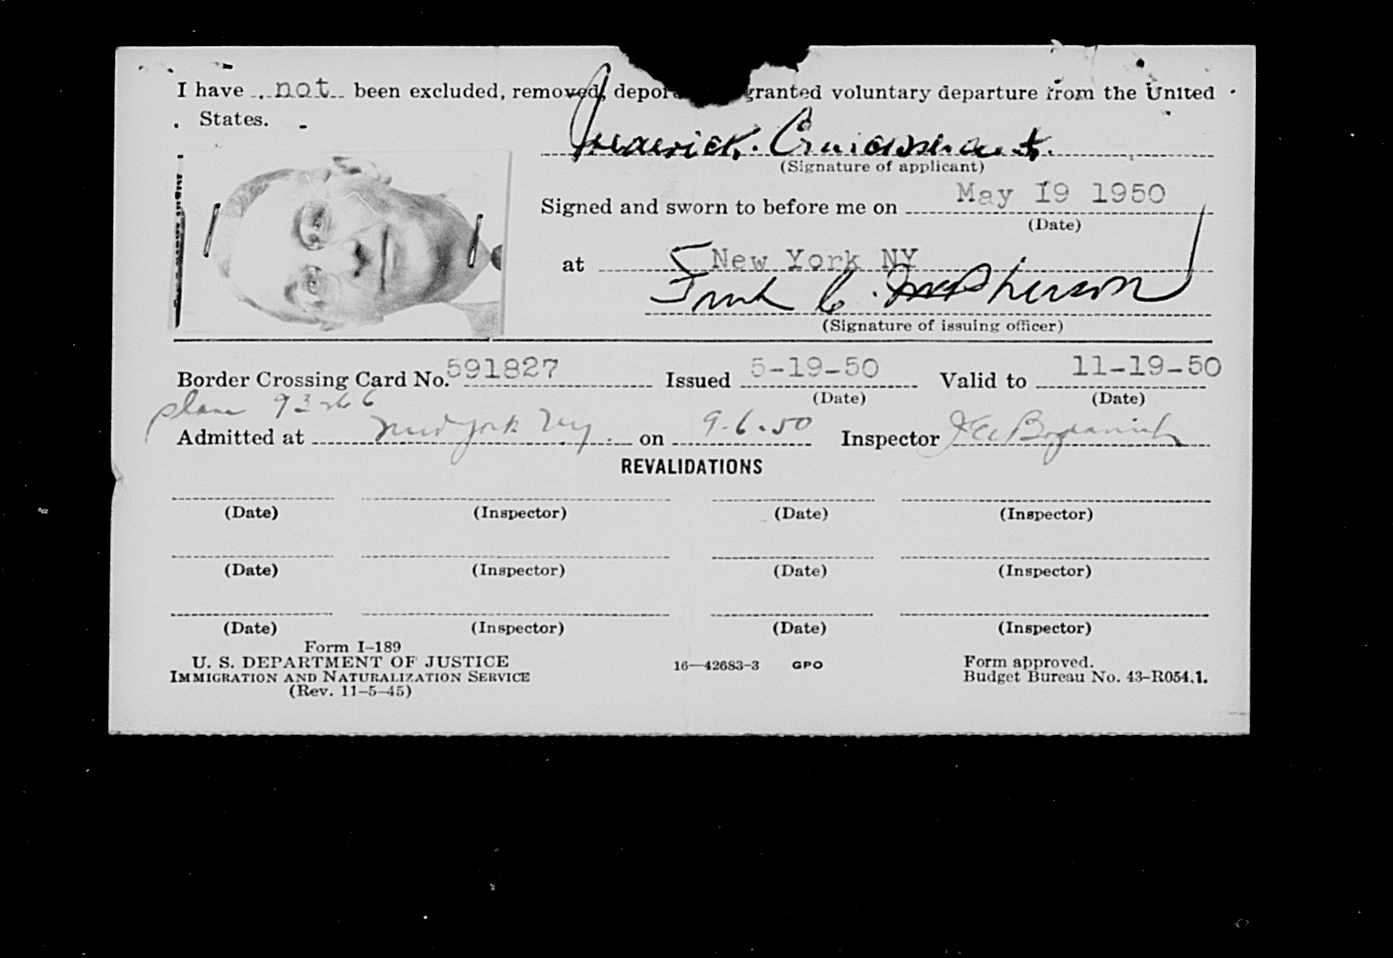 I have not been excluded, removed, depor granted voluntary departure from the United
States.
Frederick Cruickshank.
(Signature of applicant)
Signed and sworn to before me on May 19 1950
(Date)
at New York NY
Frank C. McPherson
(Signature of issuing officer)
Border Crossing Card No. 591827 Issued 5-19-50 Valid to 11-19-50
(Date) (Date)
plane
Admitted at New York NY. on 9-6-50 Inspector
REVALIDATIONS
(Date) (Inspector) (Date) (Inspector)
(Date) (Inspector) (Date) (Inspector)
(Date) (Inspector) (Date) (Inspector)
Form I-189
U. S. DEPARTMENT OF JUSTICE 16—42683-3 GPO Form approved.
IMMIGRATION AND NATURALIZATION SERVICE Budget Bureau No. 43-R054.1.
(Rev. 11-5-45)